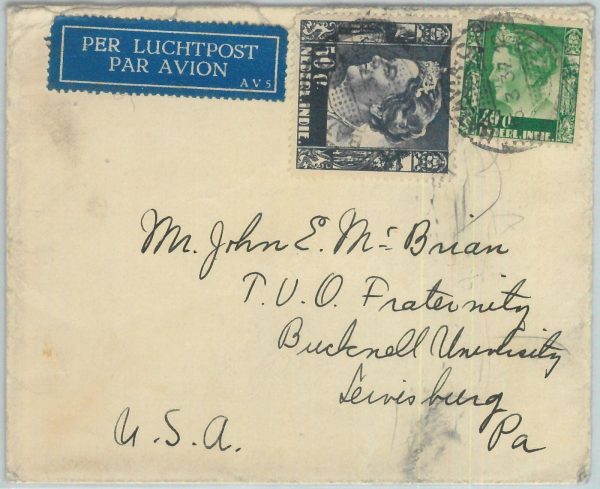 PER LUCHTPOST
PAR AVION
AV5
50c
NED. INDIE
40c
NED. INDIE
Mr. John E. McBrian
T.U.O. Fraternity
Bucknell University
Lewisburg
Pa
U.S.A.